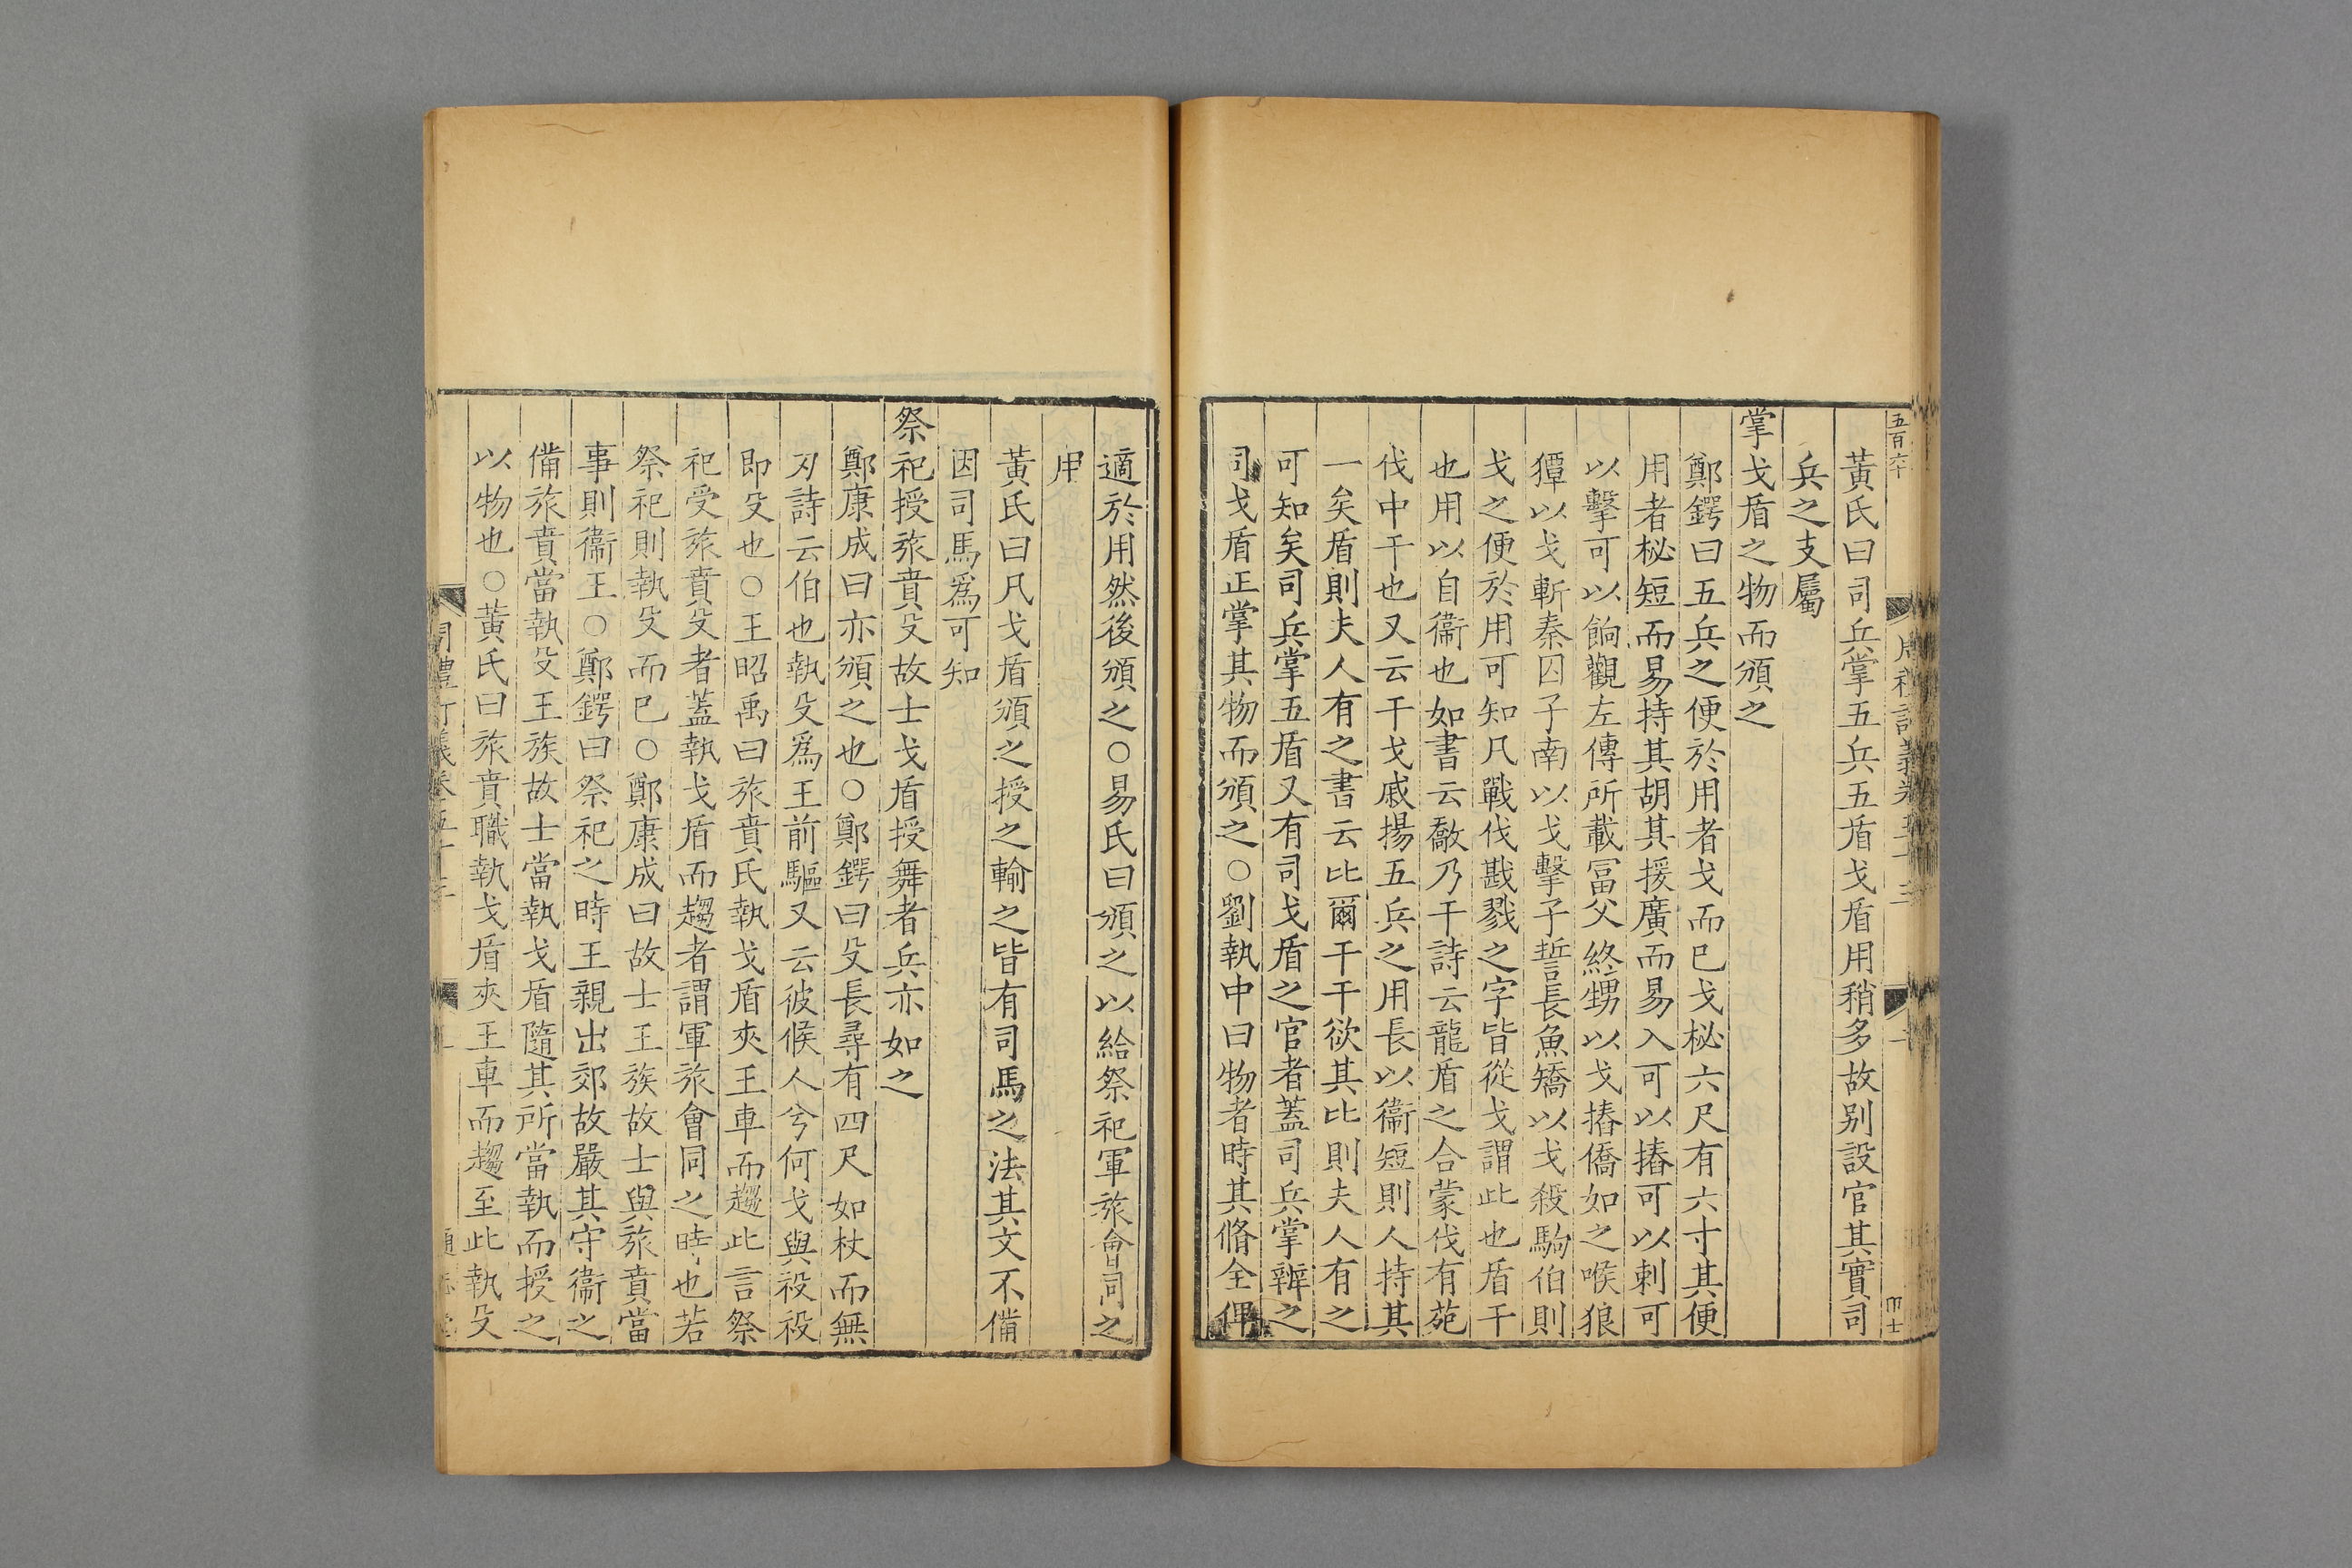 五百六十
黃氏曰司兵掌五兵五盾戈盾用稍多故别設官其實司
兵之支屬
掌戈盾之物而頒之
鄭鍔曰五兵之便於用者戈而已戈柲六尺有六寸其便
用者柲短而易持其胡其援廣而易入可以摏可以刺可
以擊可以餉觀左傳所載冨父終甥以戈摏僑如之喉狼
獐以戈斬秦囚子南以戈擊子晳長魚矯以戈殺駒伯則
戈之便於用可知凡戰伐戡戮之字皆從戈謂此也盾干
也用以自衞也如書云敽乃干詩云龍盾之合蒙伐有苑
伐中干也又云干戈戚揚五兵之用長以衞短則人持其
一矣盾則夫人有之書云比爾干干欲其比則夫人有之
可知矣司兵掌五盾又有司戈盾之官者蓋司兵掌辨之
司戈盾正掌其物而頒之○劉執中曰物者時其脩全俾
適於用然後頒之○易氏曰頒之以給祭祀軍旅會同之
用
黃氏曰凡戈盾頒之授之輸之皆有司馬之法其文不備
因司馬爲可知
祭祀授旅賁殳故士戈盾授舞者兵亦如之
鄭康成曰亦頒之也○鄭鍔曰殳長尋有四尺如杖而無
刃詩云伯也執殳爲王前驅又云彼候人兮何戈與祋祋
即殳也○王昭禹曰旅賁氏執戈盾夾王車而趨此言祭
祀受旅賁殳者蓋執戈盾而趨者謂軍旅會同之時也若
祭祀則執殳而已○鄭康成曰故士王族故士與旅賁當
事則衞王○鄭鍔曰祭祀之時王親出郊故嚴其守衞之
備旅賁當執殳王族故士當執戈盾隨其所當執而授之
以物也○黃氏曰旅賁職執戈盾夾王車而趨至此執殳